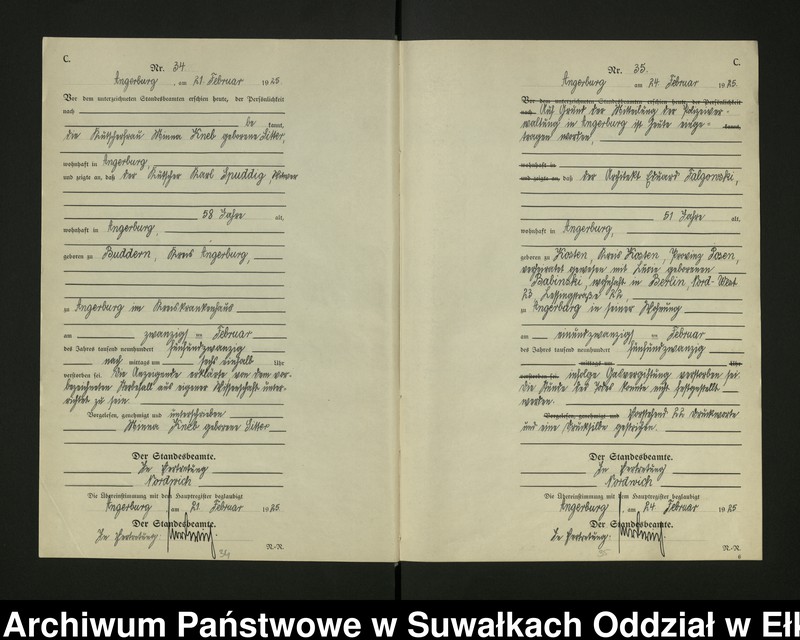 C.
Nr. 34
Angerburg, am 21 Februar 1925.
Vor dem unterzeichneten Standesbeamten erschien heute, der Persönlichkeit
nach
be kannt,
die Kutscherfrau Minna Kneb geborene Sitter,
wohnhaft in Angerburg,
und zeigte an, daß der Kutscher Karl Spuddig, Witwer
58 Jahre alt,
wohnhaft in Angerburg,
geboren zu Buddern, Kreis Angerburg,
zu Angerburg im Kreiskrankenhaus
am zwanzigsten Februar
des Jahres tausend neunhundert fünfundzwanzig
nach mittags um sechs einhalb Uhr
verstorben sei. Die Anzeigende erklärte von dem vor-
bezeichneten Sterbefall aus eigener Wissenschaft unter-
richtet zu sein.
Vorgelesen, genehmigt und unterschrieben
Minna Kneb geborene Sitter
Der Standesbeamte.
In Vertretung
Nordwich
Die Übereinstimmung mit dem Hauptregister beglaubigt
Angerburg, am 21 Februar 1925
Der Standesbeamte.
In Vertretung:
34
N.-N.
C.
Nr. 35.
Angerburg am 24 Februar 1925.
Vor dem unterzeichneten Standesbeamten erschien heute, der Persönlichkeit
nach Auf Grund der Mitteilung der Polizeiver-
waltung in Angerburg ist heute einge- kannt,
tragen worden,
wohnhaft in
und zeigte an, daß der Architekt Eduard Falgowski,
51 Jahre alt,
wohnhaft in Angerburg,
geboren zu Kosten, Kreis Kosten, Provinz Posen,
verheiratet gewesen mit Lucie geborenen
Babinski, wohnhaft in Berlin, Nord-West
23 Lessingstraße 22,
zu Angerburg in seiner Wohnung
am einundzwanzigsten Februar
des Jahres tausend neunhundert fünfundzwanzig
mittags um Uhr
verstorben sei. infolge Gasvergiftung verstorben sei.
Die Stunde des Todes konnte nicht festgestellt
werden.
Vorgelesen, genehmigt und Vorstehend 22 Druckworte
und eine Drucksilbe gestrichen.
Der Standesbeamte.
In Vertretung
Nordwich
Die Übereinstimmung mit dem Hauptregister beglaubigt
Angerburg, am 24 Februar 1925
Der Standesbeamte.
In Vertretung:
35
N.-N.
Archiwum Państwowe w Suwałkach Oddział w Eł